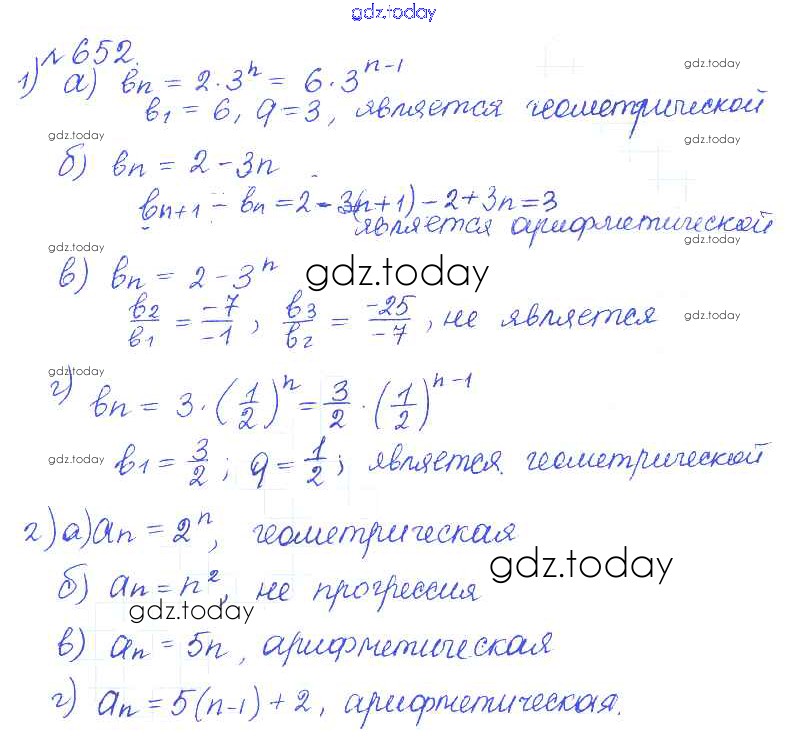 gdz.today
№652.
1) а) bn = 2·3^n = 6·3^(n-1)
gdz.today
b1 = 6, q = 3, является геометрической
gdz.today
gdz.today
б) bn = 2 - 3n
bn+1 - bn = 2 - 3(n+1) - 2 + 3n = 3
является арифметической
gdz.today
gdz.today
в) bn = 2 - 3^n
gdz.today
b2/b1 = -7/-1, b3/b2 = -25/-7, не является
gdz.today
gdz.today
г) bn = 3·(1/2)^n = 3/2·(1/2)^(n-1)
gdz.today
b1 = 3/2; q = 1/2; является геометрической
gdz.today
2) а) an = 2^n, геометрическая
gdz.today
б) an = n², не прогрессия
gdz.today
в) an = 5n, арифметическая
г) an = 5(n-1) + 2, арифметическая.